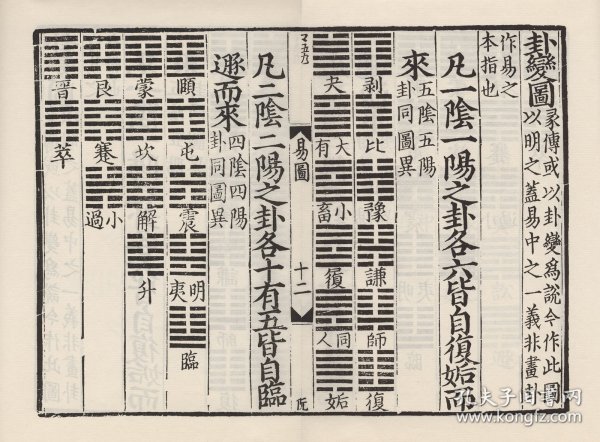 卦變圖
彖傳或以卦變爲說今作此圖
以明之蓋易中之一義非畫卦
作易之
本指也
凡一陰一陽之卦各六皆自復姤而
來
五陰五陽
卦同圖異
剥
比
豫
謙
師
復
夬
大有
小畜
履
同人
姤
易圖
十二
凡二陰二陽之卦各十有五皆自臨
遯而來
四陰四陽
卦同圖異
頤
屯
震
明夷
臨
蒙
坎
解
升
艮
蹇
小過
晉
萃
孔夫子旧书网
www.kongfz.com